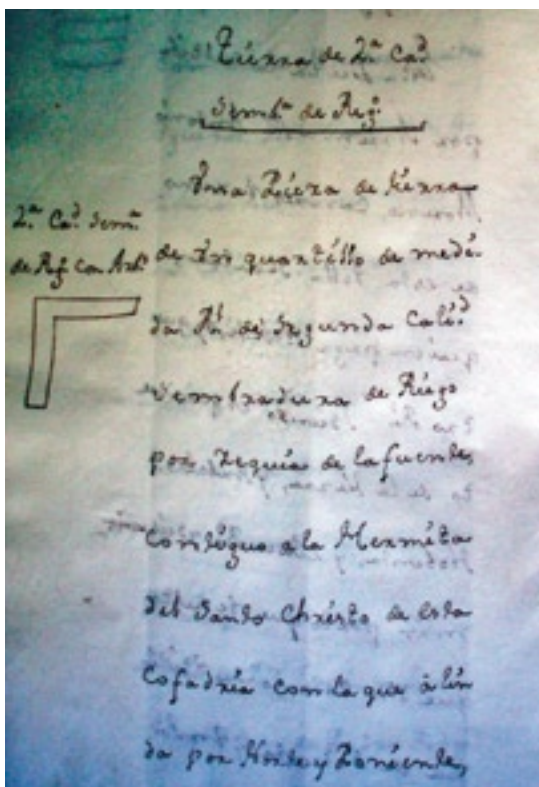 Tierra de 2ª Cad
Sembª de Regº
2ª Cad Semª
de Regº con Arbs
Vna Pieza de tierra
de Vn quartillo de medi-
da Rl de Segunda Calid
Sembradura de Riego
por Zequia de la fuente,
Contiguo a la Hermita
del Santo Christo de esta
Cofadria con la que alin
da por Norte y Poniente,